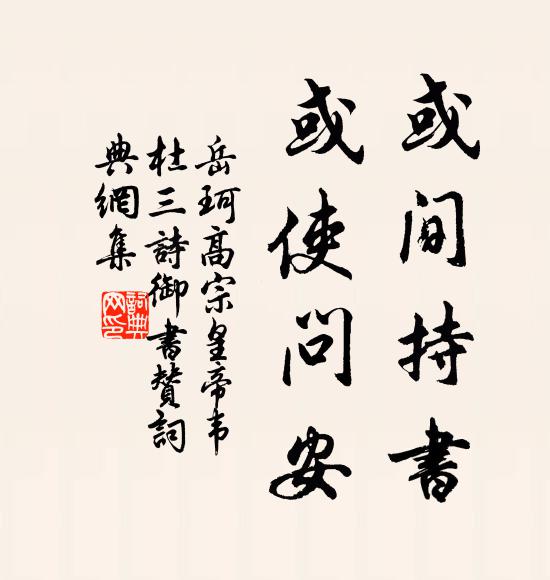 或間持書
或使問安
岳珂高宗皇帝韦
杜三詩御書贊詞
典網集
詞典
网印